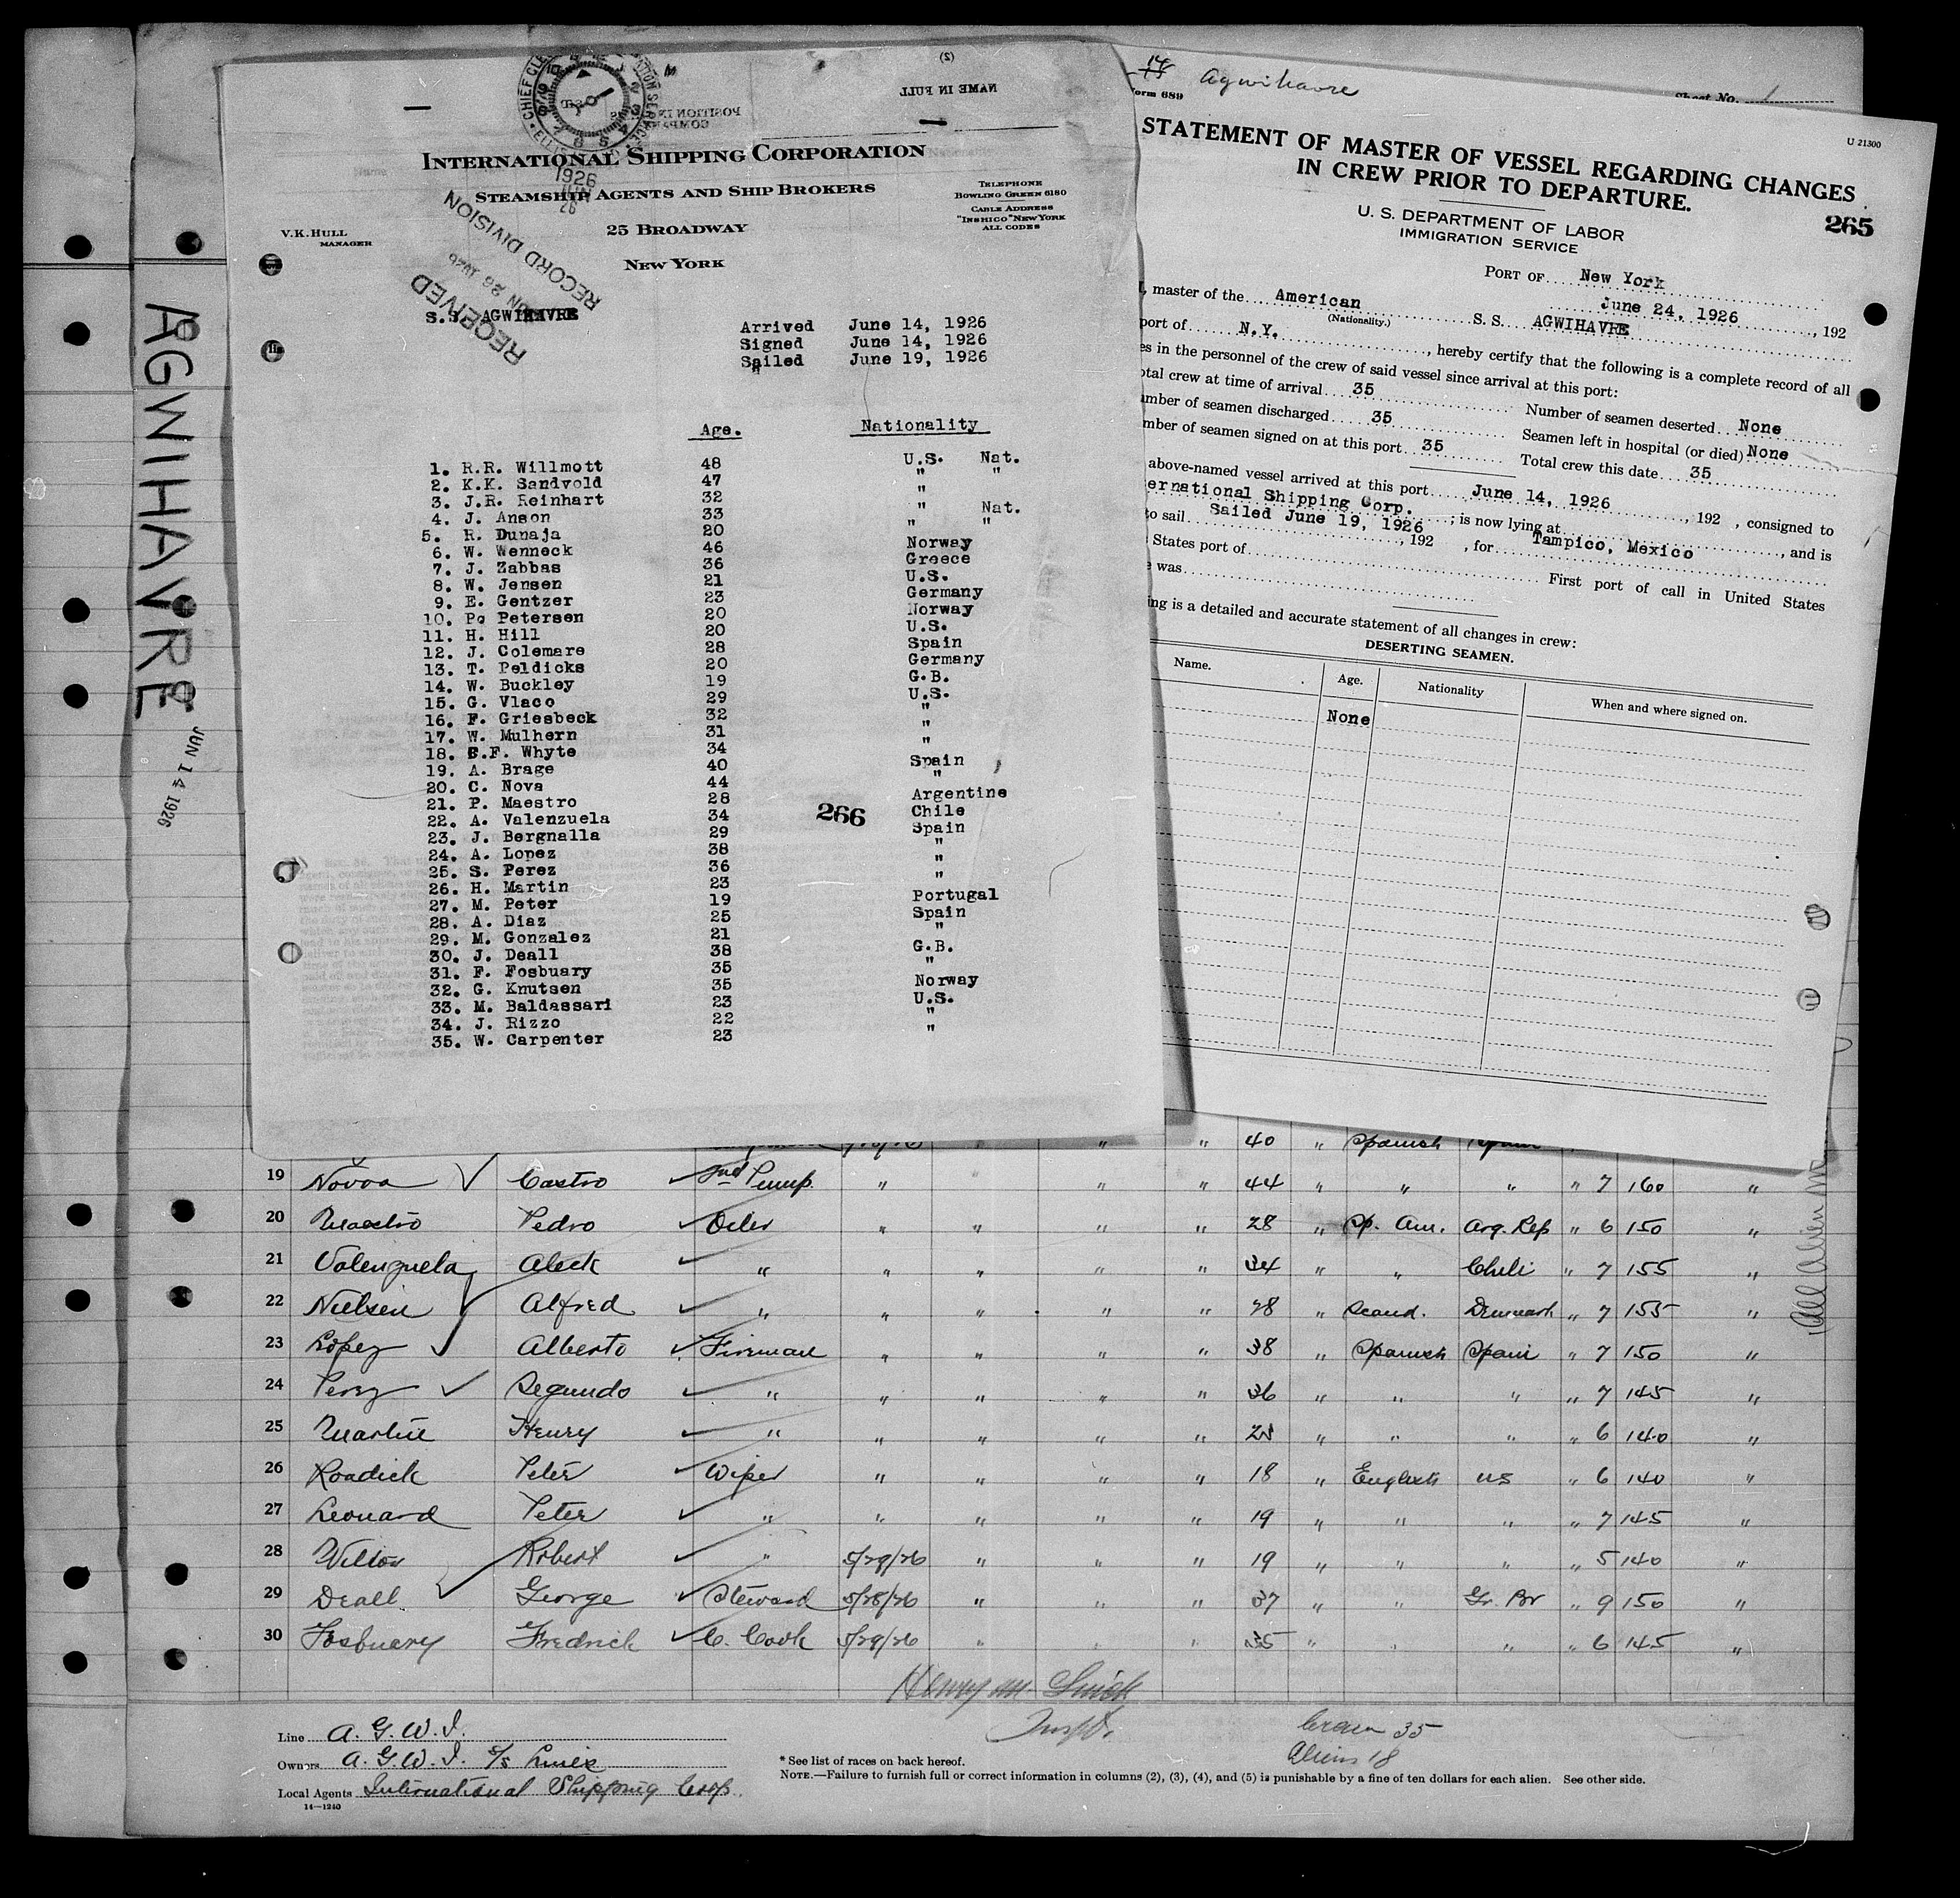 AGWIHAVRE
JUN 14 1926
(2)
NAME IN FULL
POSITION IN
INTERNATIONAL SHIPPING CORPORATION
STEAMSHIP AGENTS AND SHIP BROKERS
25 BROADWAY
NEW YORK
V.K. HULL
MANAGER
TELEPHONE
BOWLING GREEN 6180
CABLE ADDRESS
"INSHICO" NEW YORK
ALL CODES
1926
JUN
26
RECORD DIVISION
JUN 26 1926
RECEIVED
S.S. AGWIHAVRE
Arrived June 14, 1926
Signed June 14, 1926
Sailed June 19, 1926
Age. Nationality
1. R.R. Willmott 48 U.S. Nat.
2. K.K. Sandvold 47 " "
3. J.R. Reinhart 32 "
4. J. Anson 33 " Nat.
5. R. Dunaja 20 " "
6. W. Wenneck 46 Norway
7. J. Zabbas 36 Greece
8. W. Jensen 21 U.S.
9. E. Gentzer 23 Germany
10. P. Petersen 20 Norway
11. H. Hill 20 U.S.
12. J. Colemare 28 Spain
13. T. Peldicks 20 Germany
14. W. Buckley 19 G.B.
15. G. Vlaco 29 U.S.
16. F. Griesbeck 32 "
17. W. Mulhern 31 "
18. G.F. Whyte 34 "
19. A. Brage 40 Spain
20. C. Nova 44 "
21. P. Maestro 28 Argentine
22. A. Valenzuela 34 Chile
23. J. Bergnalla 29 Spain
24. A. Lopez 38 "
25. S. Perez 36 "
26. H. Martin 23 "
27. M. Peter 19 Portugal
28. A. Diaz 25 Spain
29. M. Gonzalez 21 "
30. J. Deall 38 G.B.
31. F. Fosbuary 35 "
32. G. Knutsen 35 Norway
33. M. Baldassari 23 U.S.
34. J. Rizzo 22 "
35. W. Carpenter 23 "
266
Agwihavre
Form 689
Sheet No. 1
U 21300
STATEMENT OF MASTER OF VESSEL REGARDING CHANGES
IN CREW PRIOR TO DEPARTURE.
265
U. S. DEPARTMENT OF LABOR
IMMIGRATION SERVICE
PORT OF New York
June 24, 1926, 192
, master of the American S. S. AGWIHAVRE
(Nationality.)
port of N.Y., hereby certify that the following is a complete record of all
es in the personnel of the crew of said vessel since arrival at this port:
otal crew at time of arrival 35 Number of seamen deserted None
umber of seamen discharged 35 Seamen left in hospital (or died) None
mber of seamen signed on at this port 35 Total crew this date 35
above-named vessel arrived at this port June 14, 1926, 192 , consigned to
ernational Shipping Corp. ; is now lying at , and is
to sail Sailed June 19, 1926, 192 , for Tampico, Mexico
States port of First port of call in United States
e was
ing is a detailed and accurate statement of all changes in crew:
DESERTING SEAMEN.
Name. Age. Nationality When and where signed on.
None
" " " 40 " Spanish Spain
19 Novoa Castro 2nd Pump. " " " " 44 " " " " 7 160 "
20 Maestro Pedro Oiler " " " " 28 " Sp. Am. Arg. Rep " 6 150 "
21 Valenzuela Aleck " " " " " 34 " " Chili " 7 155 "
22 Nielsen Alfred " " " " " 28 " Scand. Denmark " 7 155 "
23 Lopez Alberto Fireman " " " " 38 " Spanish Spain " 7 150 "
24 Perez Segundo " " " " " 36 " " " " 7 145 "
25 Martin Henry " " " " " 23 " " " " 6 140 "
26 Roadick Peter Wiper " " " " 18 " English US " 6 140 "
27 Leonard Peter " " " " " 19 " " " " 7 145 "
28 Wilson Robert " 5/29/26 " " " 19 " " " " 5 140 "
29 Deall George Steward 5/28/26 " " " 37 " " Gr. Br " 9 150 "
30 Fosbuery Fredrick C. Cook 5/29/26 " " " 35 " " " " 6 145 "
All Alien
Henry M.
Insp.
Crew 35
Aliens 18
Line A. G. W. I.
Owners A. G. W. I. S/S Lines
Local Agents International Shipping Corp.
14—1240
* See list of races on back hereof.
NOTE.—Failure to furnish full or correct information in columns (2), (3), (4), and (5) is punishable by a fine of ten dollars for each alien. See other side.